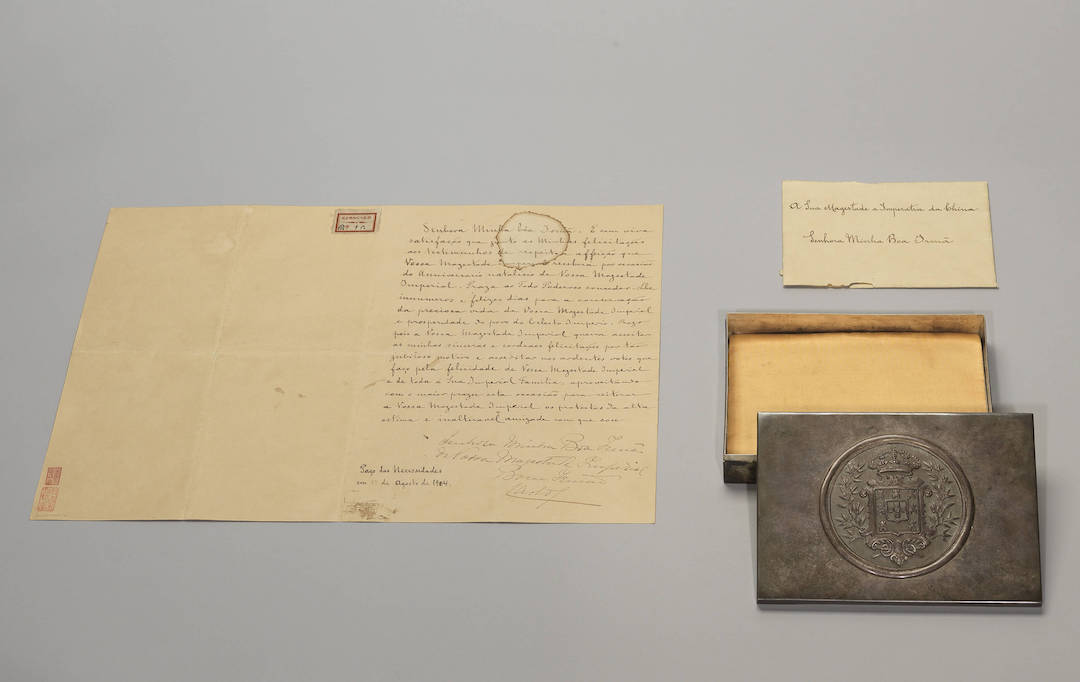 Senhora Minha bôa Irmã. É com viva
satisfação que junto as Minhas felicitações
aos testimunhos de respeito e affeição que
Vossa Magestade recebera por occasião
do Anniversario natalicio de Vossa Magestade
Imperial. Praza ao Todo Poderoso conceder-lhe
innumeros e felizes dias para a conservação
da preciosa vida de Vossa Magestade Imperial
e prosperidade do povo do Celeste Imperio. Rogo
pois a Vossa Magestade Imperial queira aceitar
as minhas sinceras e cordeaes felicitações por tão
jubiloso motivo e acreditar nos ardentes votos que
faço pela felicidade de Vossa Magestade Imperial
e de toda a Sua Imperial Familia, aproveitando
com o maior prazer esta occasião para reiterar
a Vossa Magestade Imperial os protestos da alta
estima e inalteravel amizade com que sou
Senhora Minha Boa Irmã
de Vossa Magestade Imperial
Bom Irmão
Carlos
Paço das Necessidades
em de Agosto de 1904.
A Sua Magestade a Imperatriz da China
Senhora Minha Boa Irmã